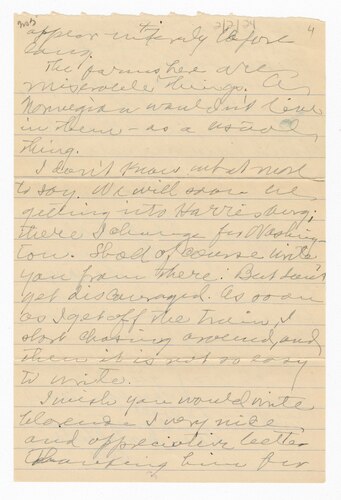 2/2/24 4
appear entirely before
long.
The farms here are
miserable things. A
Norwegian wouldn't live
in them - as a usual
thing.
I don't know what more
to say. We will soon be
getting into Harrisburg,
there I change for Washing-
ton. Shall of course write
you from there. But don't
get discouraged. As soon
as I get off the train, I
start chasing around, and
then it is not so easy
to write.
I wish you would write
a very nice
and appreciative letter
thanking him for